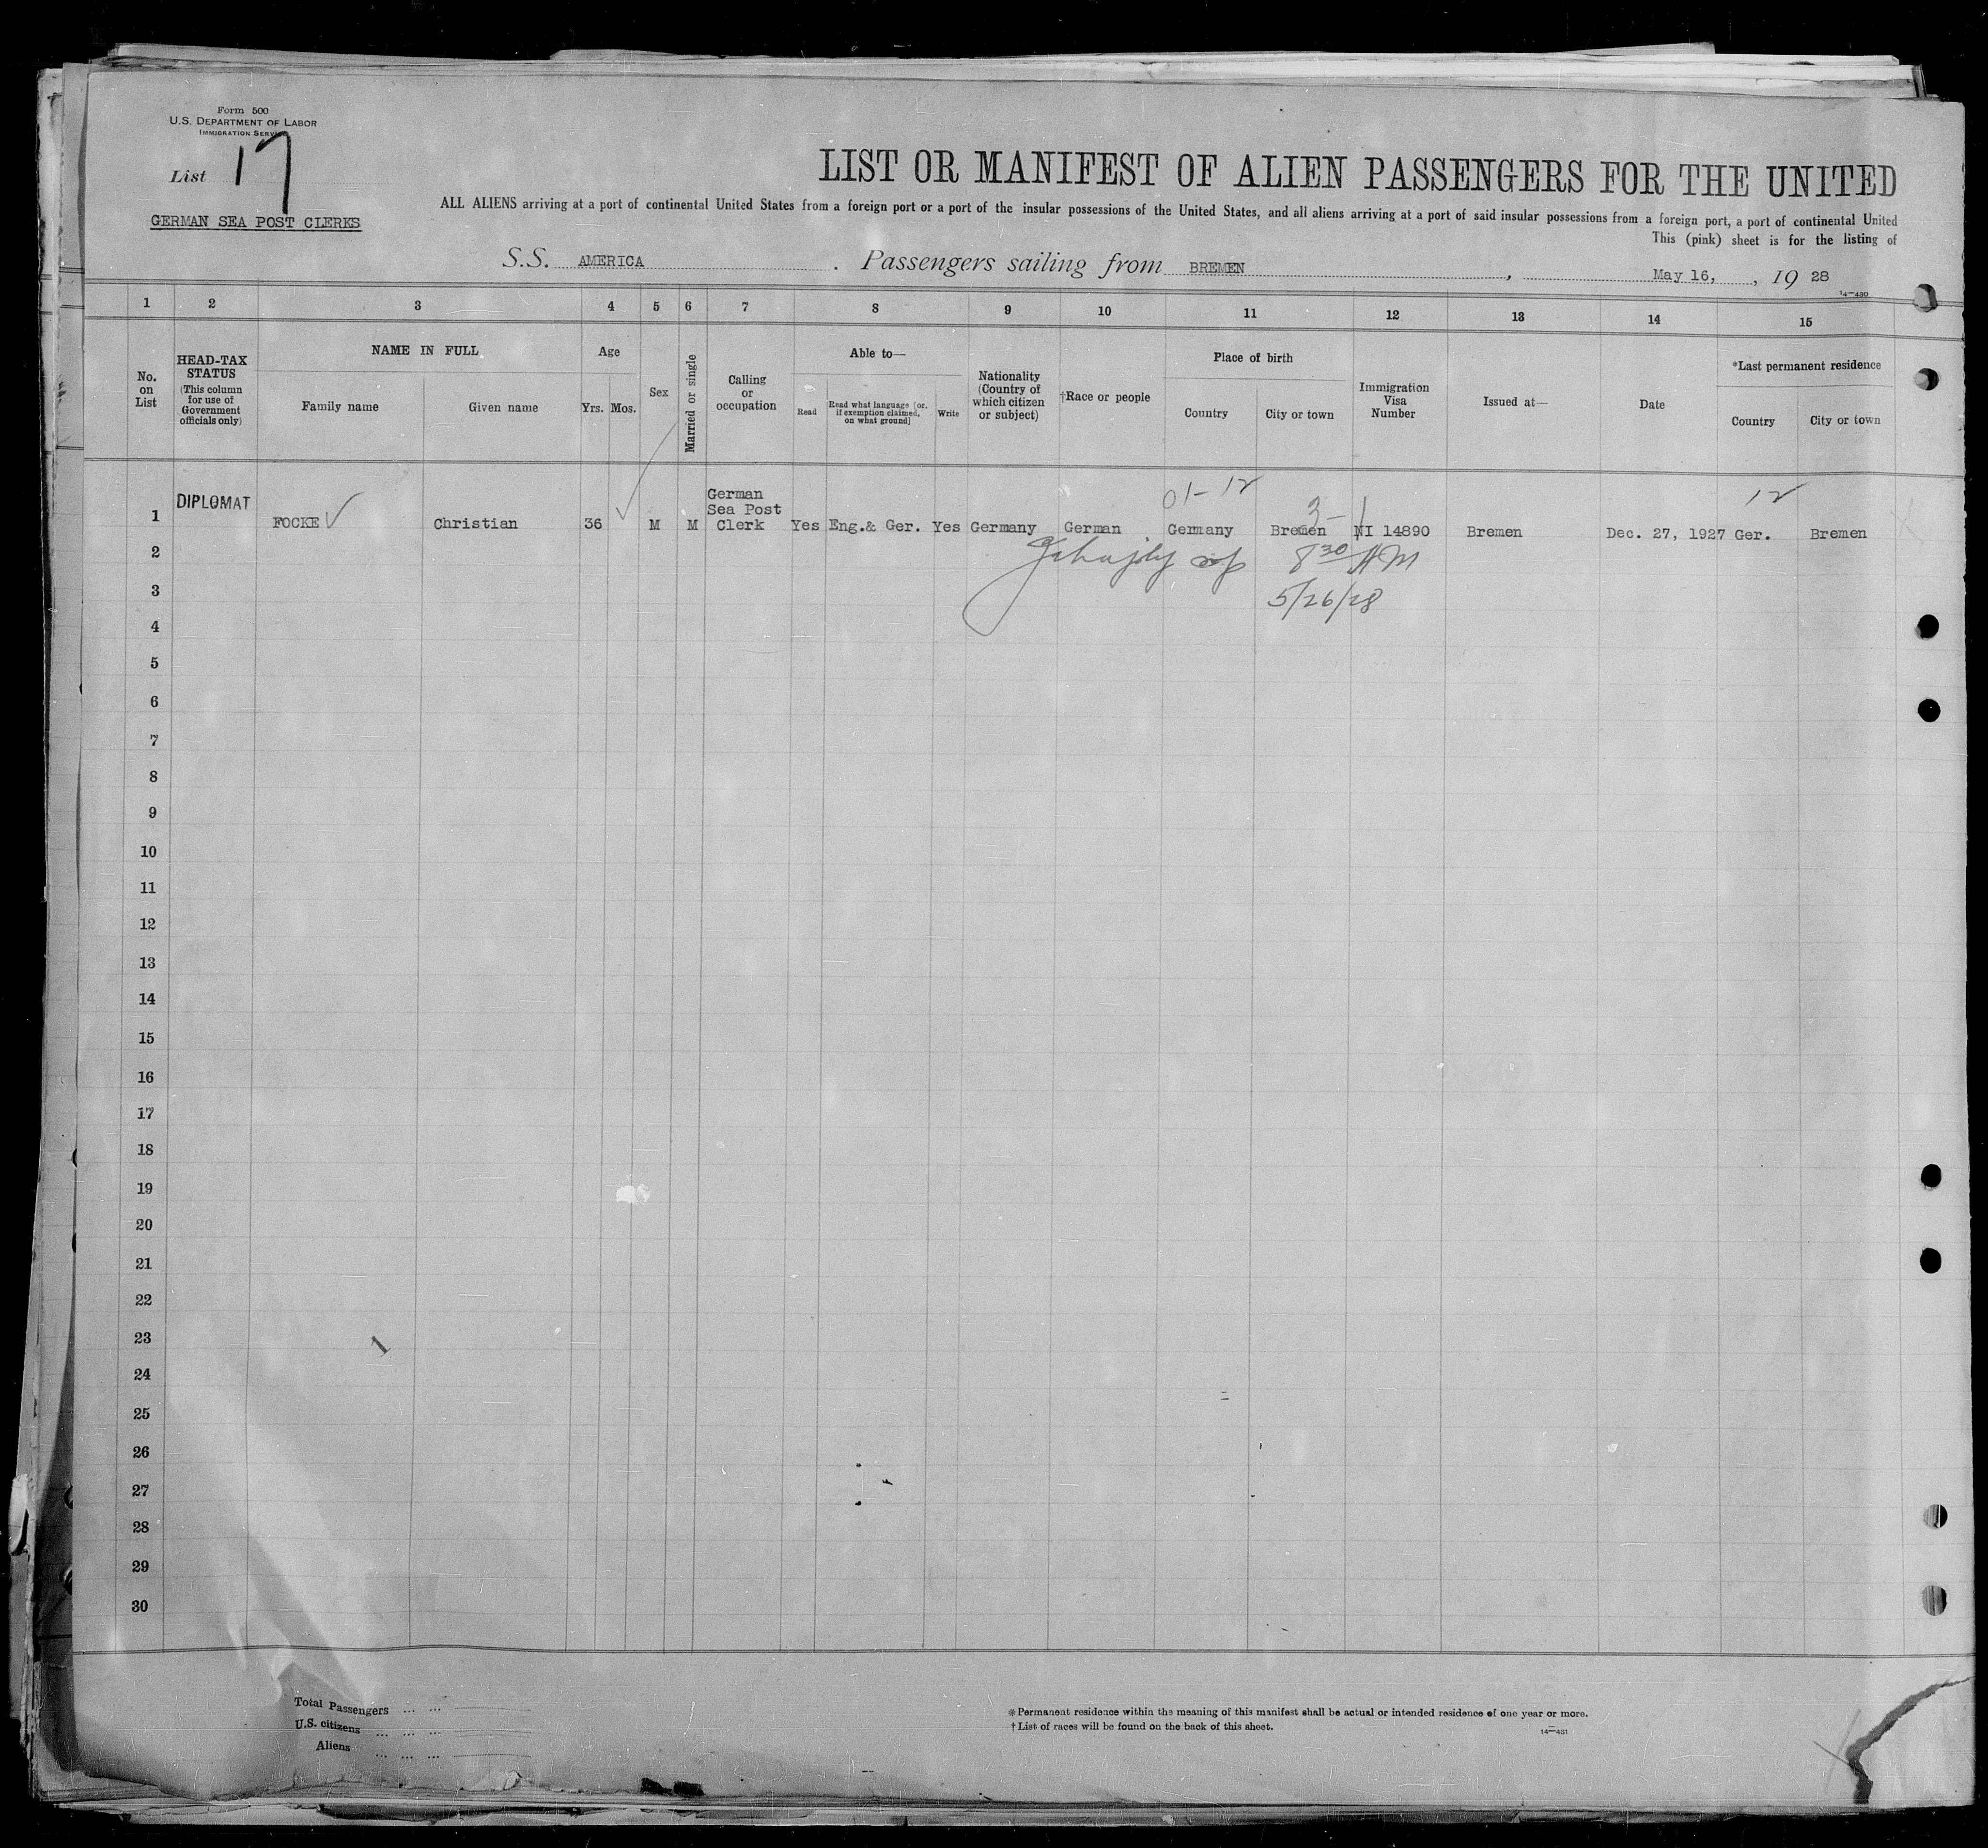 Form 500
U.S. DEPARTMENT OF LABOR
IMMIGRATION SERVICE
List 17
GERMAN SEA POST CLERKS
LIST OR MANIFEST OF ALIEN PASSENGERS FOR THE UNITED
ALL ALIENS arriving at a port of continental United States from a foreign port or a port of the insular possessions of the United States, and all aliens arriving at a port of said insular possessions from a foreign port, a port of continental United
This (pink) sheet is for the listing of
S.S. AMERICA . Passengers sailing from BREMEN , May 16, , 19 28
14—430
1 2 3 4 5 6 7 8 9 10 11 12 13 14 15
No. on List
HEAD-TAX STATUS (This column for use of Government officials only)
NAME IN FULL
Family name Given name
Age
Yrs. Mos.
Sex
Married or single
Calling or occupation
Able to—
Read Read what language [or, if exemption claimed, on what ground] Write
Nationality (Country of which citizen or subject)
†Race or people
Place of birth
Country City or town
Immigration Visa Number
Issued at—
Date
*Last permanent residence
Country City or town
01-12 3- 12
1 DIPLOMAT FOCKE Christian 36 M M German Sea Post Clerk Yes Eng.& Ger. Yes Germany German Germany Bremen NI 14890 Bremen Dec. 27, 1927 Ger. Bremen
2 8 30 AM
3 5/26/28
4
5
6
7
8
9
10
11
12
13
14
15
16
17
18
19
20
21
22
23 1
24
25
26
27
28
29
30
Total Passengers ... ...
U.S. citizens ... ... ...
Aliens ... ... ...
*Permanent residence within the meaning of this manifest shall be actual or intended residence of one year or more.
†List of races will be found on the back of this sheet.
14—431